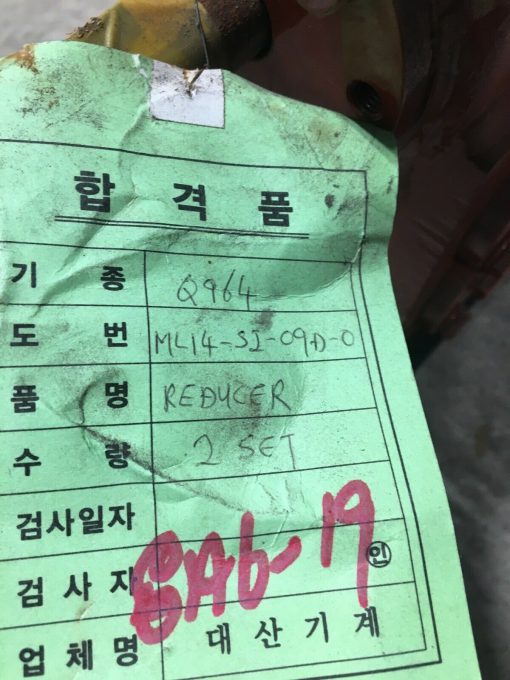 합격품
기종 Q964
도번 ML14-S2-09D-0
품명 REDUCER
수량 2 SET
검사일자
검사자 인
BA6-19
업체명 대산기계